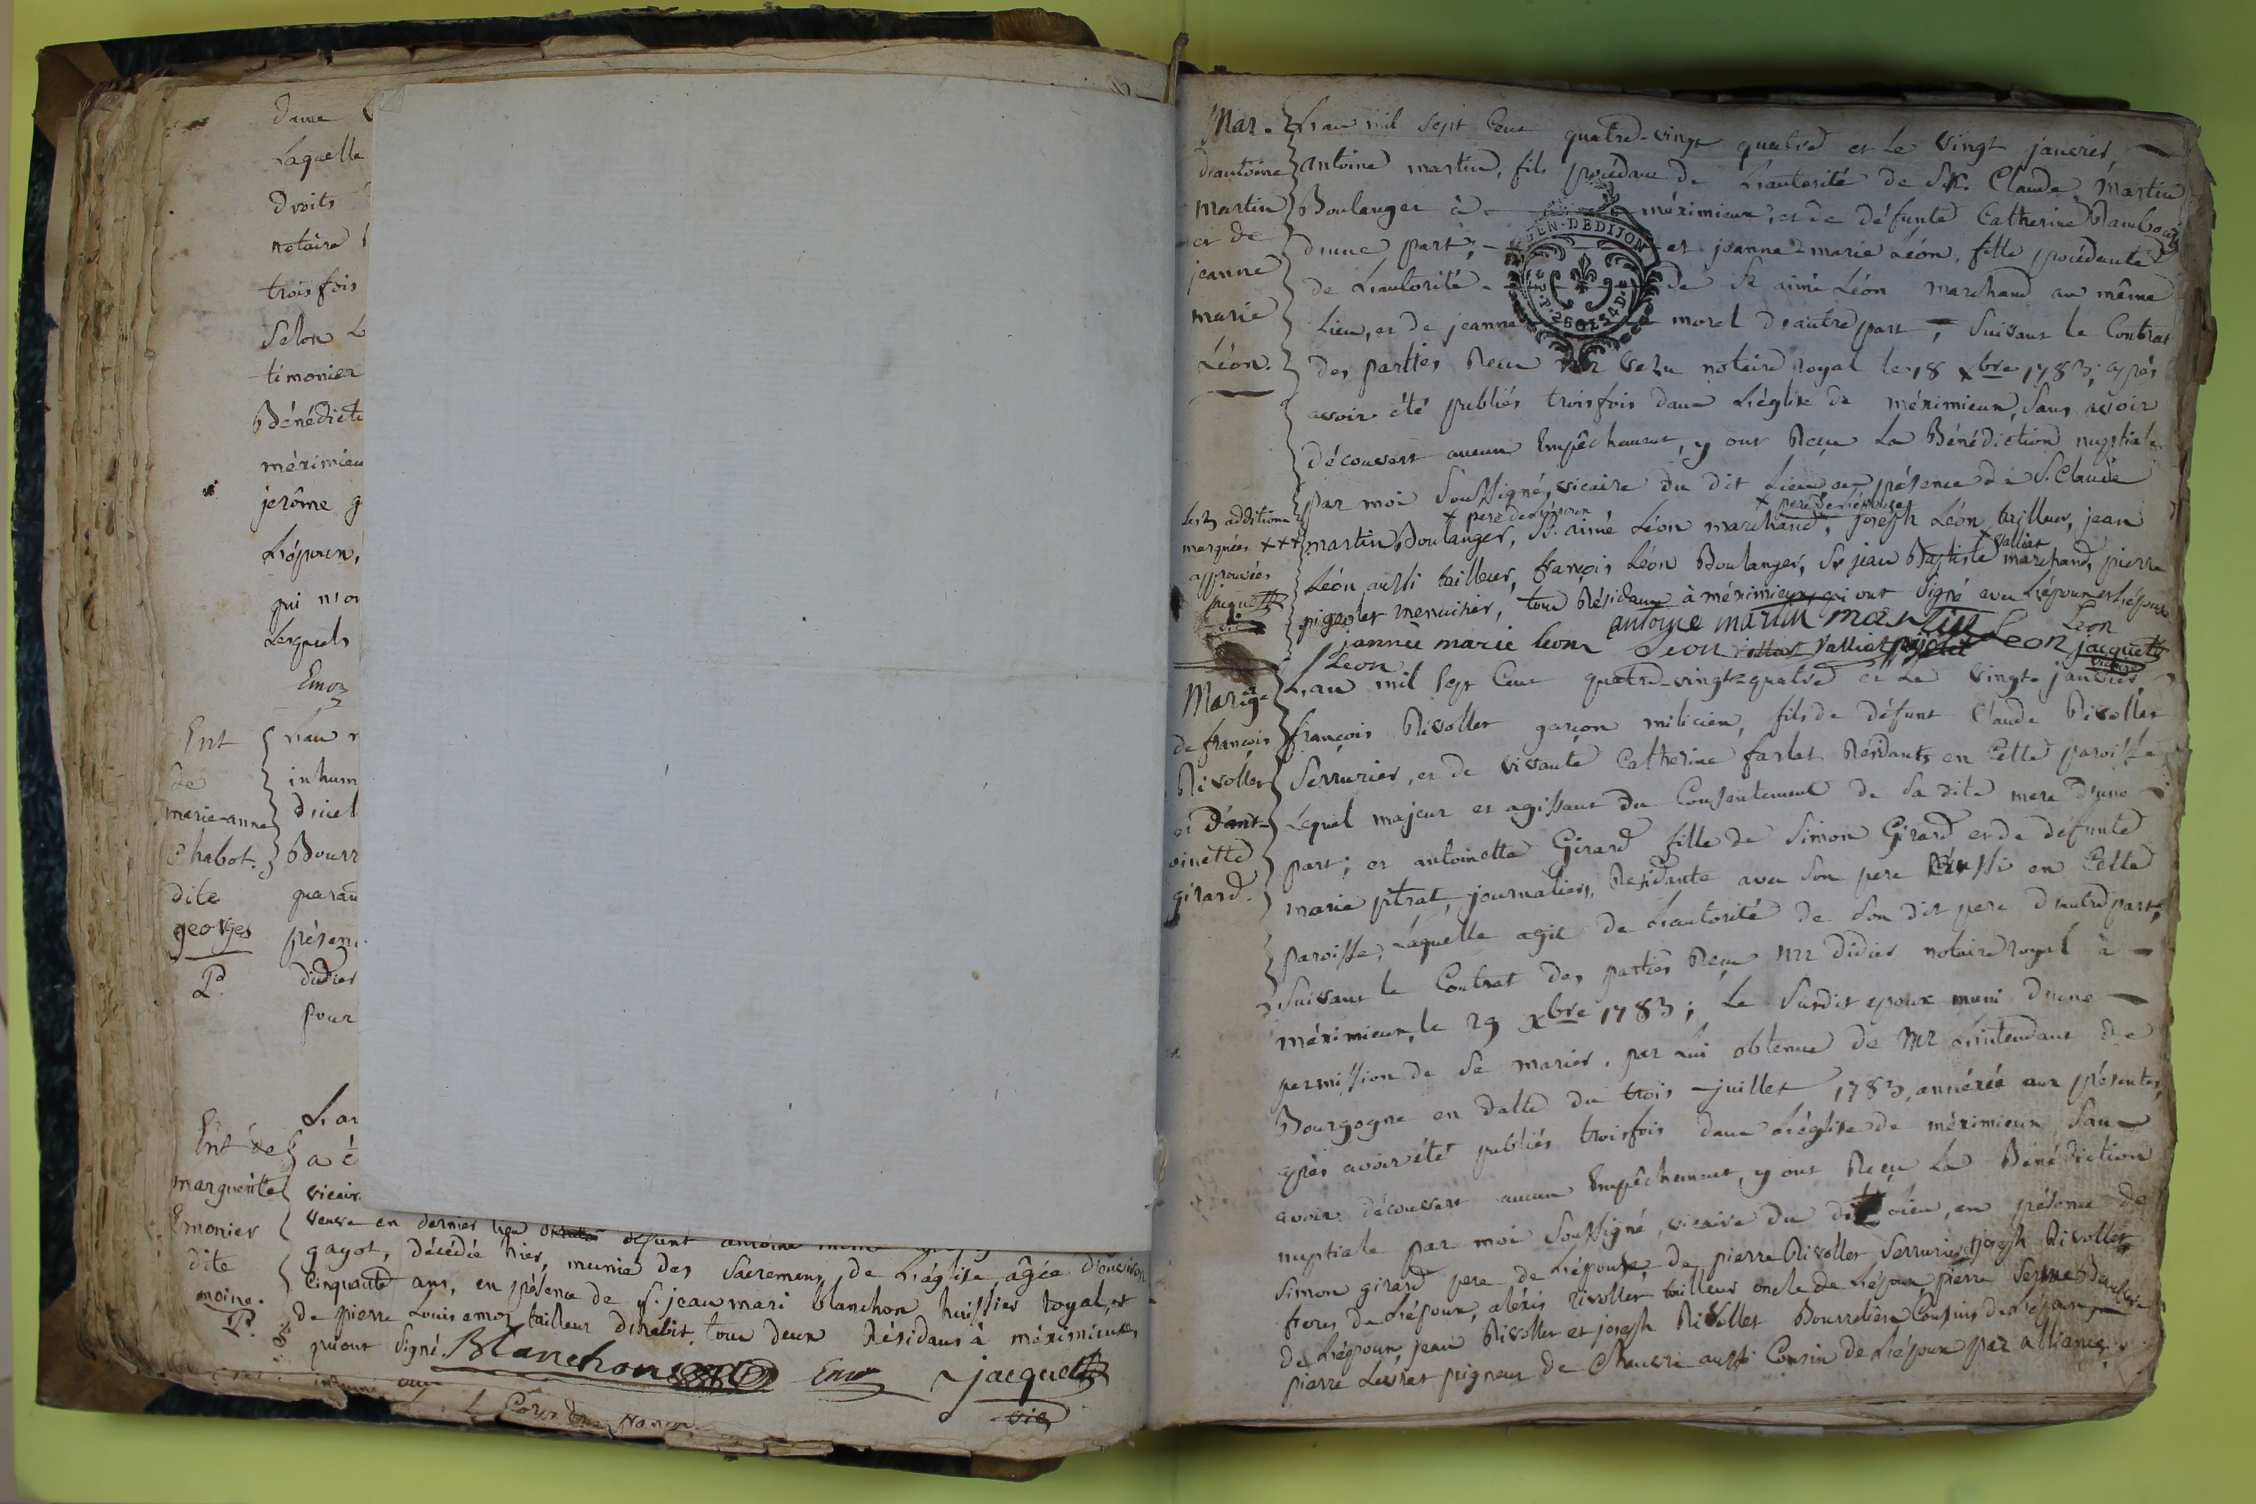 Dame
Laquelle
Droits
notaire
trois fois
Selon L
timonier
Bénédicti
mérimieu
jerôme g
L'époux,
qui n'on
Lesquels
Emoz
Ent
de
marie-anne
Chabot.
dite
georges
Pd
L'an
inhum
d'icel
Bourr
quaran
présen
didier
pour
Ent de
marguerite
Emonier
dite
moine.
Pd
L'an
a é
vicair
veuve en dernier defunt antoine
gayot, décédée hier, munie des Sacremens de L'église, âgée d'environ
Cinquante ans, en présence de Sr. jean mari blanchon huissier royal, et
de pierre Louis emoz tailleur d'habit, tous deux Résidans à mériemieux
qui ont Signé. Blanchon Emoz jacquet
vic
Corps
Mar.
d'antoine
martin
et de
jeanne
marie
Léon.
L'an mil Sept Cent quatre-vingt quatre et Le vingt janvier,
antoine martin, fils procédant de L'autorité de Sr. Claude Martin
Boulanger à mériemieux, et de défunte Catherine
d'une part; et jeanne-marie Léon, fille procédante
de L'autorité de Sr aimé Léon marchand au même
Lieu, et de jeanne morel d'autre part, Suivant le Contrat
GEN. DE DIJON
des parties Reçu Mr vezu notaire royal le 18 xbre 1783; après
avoir été publiés trois fois dans L'église de mériemieux, Sans avoir
découvert aucun Empêchement, y ont Reçu La Bénédiction nuptiale
par moi Soussigné, vicaire du dit Lieu en présence de Sr. Claude
x pere de L'époux x pere de L'épouse
martin Boulanger, Sr. aimé Léon marchand, joseph Léon tailleur, jean
x valliat
Léon aussi tailleur, françois Léon Boulanger, Sr jean Baptiste marchand, pierre
pigeolet menuisier, tous Résidans à mériemieux qui ont Signé avec L'époux et L'épouse
Les 3 additions
marquées xxx
approuvées
jacquet
vic
antoine martin martin Leon
jannee marie leon Leon Valliat Leon jacquet
Leon vicaire
Mariage
de françois
Rivollet
et d'ant-
oinette
girard.
L'an mil Sept Cent quatre-vingt-quatre et Le vingt janvier,
françois Rivollet garçon milicien, fils de défunt Claude Rivollet
Serrurier, et de vivante Catherine farlet Résidants en Cette paroisse
Lequel majeur et agissant du Consentement de Sa dite mere d'une
part; et antoinette Girard fille de Simon Girard et de défunte
marie ptrat, journaliers, Résidante avec Son pere aussi en Cette
paroisse, Laquelle agit de L'autorité de Son dit pere d'autre part,
Suivant le Contrat des parties Reçu Mr didier notaire royal à
mériemieux, le 29 xbre 1783; Le Susdit epoux muni d'une
permission de Se marier, par Lui obtenue de Mr L'intendant de
Bourgogne en datte du trois juillet 1783, annéxée aux présentes,
après avoir été publiés trois fois dans L'église de mériemieux Sans
avoir découvert aucun Empêchement, y ont Reçu La Bénédiction
nuptiale par moi Soussigné, vicaire du dit Lieu, en présence de
Simon girard pere de L'épouse, de pierre Rivollet Serrurier, joseph Rivollet
freres de L'époux, aléxis rivollet tailleur oncle de L'époux, pierre
de L'époux, jean Rivollet et joseph Rivollet Bourreliers Cousins de L'époux,
pierre Levrat peigneur de Chanvre aussi Cousin de L'époux par alliance,